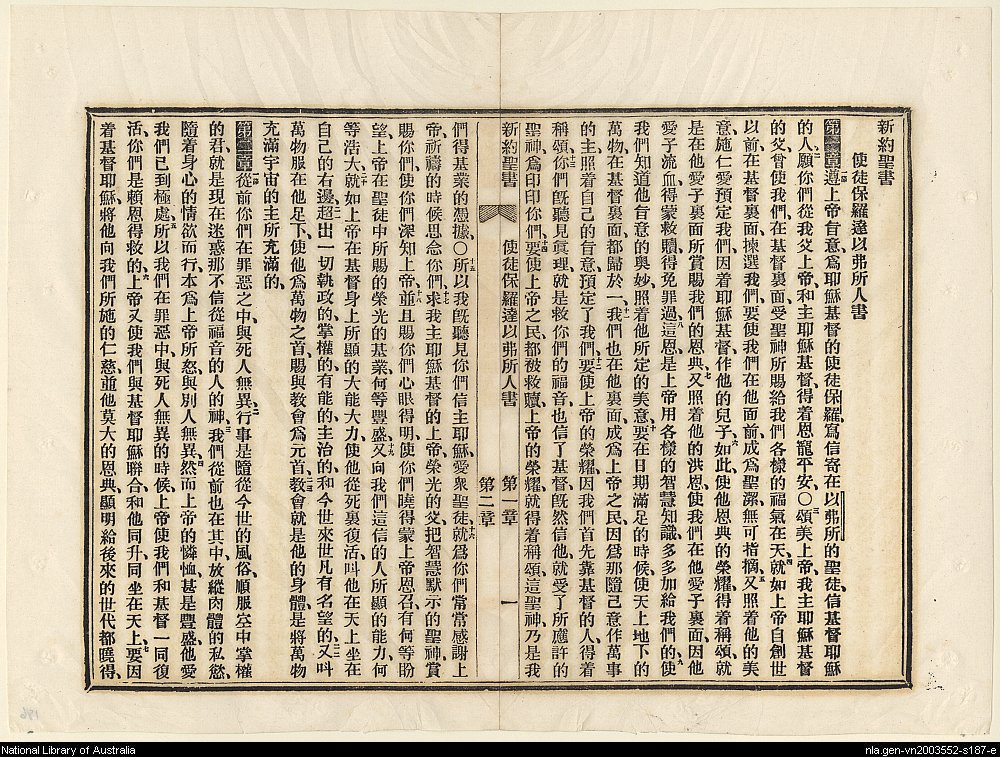 新約聖書
使徒保羅達以弗所人書
第一章一節遵上帝旨意、爲耶穌基督的使徒保羅、寫信寄在以弗所的聖徒、信基督耶穌
的人、二願你們從我父上帝、和主耶穌基督、得着恩寵平安〇三頌美上帝、我主耶穌基督
的父、曾使我們、在基督裏面、受聖神所賜給我們各樣的福氣在天、四就如上帝自創世
以前、在基督裏面、揀選我們、要使我們在他面前、成爲聖潔、無可指摘、五又照着他的美
意、施仁愛預定我們、因着耶穌基督作他的兒子、六如此使他恩典的榮耀得着稱頌、就
是在他愛子裏面所賞賜我們的恩典、七又照着他的洪恩、使我們在他愛子裏面、因他
愛子流血得蒙救贖、得免罪過、八這恩是上帝用各樣的智慧知識、多多加給我們的、九使
我們知道他旨意的奧妙、照着他所定的美意、十要在日期滿足的時候、使天上地下的
萬物、在基督裏面、都歸於一、我們也在他裏面、成爲上帝之民、因爲那隨己意作萬事
的主、照着自己的旨意預定了我們、十二要使上帝的榮耀、因我們首先靠基督的人、得着
稱頌、十三你們旣聽見眞理、就是救你們的福音、也信了基督、旣然信他、就受了所應許的
聖神爲印、印你們、十四要使上帝之民、都被救贖、上帝的榮耀、就得着稱頌、這聖神乃是我
新約聖書 使徒保羅達以弗所人書 第一章 一
第二章
們得基業的憑據〇十五所以我旣聽見你們信主耶穌、愛衆聖徒、十六就爲你們常常感謝上
帝、祈禱的時候思念你們、十七求我主耶穌基督的上帝、榮光的父、把智慧默示的聖神、賞
賜你們、使你們深知上帝、十八並且賜你們心眼得明、使你們曉得蒙上帝恩召、有何等盼
望、上帝在聖徒中所賜的榮光的基業、何等豐盛、十九又向我們這信的人所顯的能力、何
等浩大、就如上帝在基督身上所顯的大能大力、使他從死裏復活、叫他在天上坐在
自己的右邊、二一超出一切執政的、掌權的、有能的、主治的、和今世來世凡有名望的、二二又叫
萬物服在他足下、使他爲萬物之首、賜與教會爲元首、二三教會就是他的身體、是將萬物
充滿宇宙的主所充滿的、
第二章一節從前你們在罪惡之中、與死人無異、二行事是隨從今世的風俗、順服空中掌權
的君、就是現在迷惑那不信從福音的人的神、三我們從前也在其中、放縱肉體的私慾、
隨着身心的情欲而行、本爲上帝所怒、與別人無異、四然而上帝的憐恤、甚是豐盛、他愛
我們已到極處、五所以我們在罪惡中與死人無異的時候、上帝使我們和基督一同復
活、你們是賴恩得救的、六上帝又使我們與基督耶穌聯合、和他同升、同坐在天上、七要因
着基督耶穌、將他向我們所施的仁慈、並他莫大的恩典、顯明給後來的世代都曉得、
National Library of Australia
nla.gen-vn2003552-s187-e